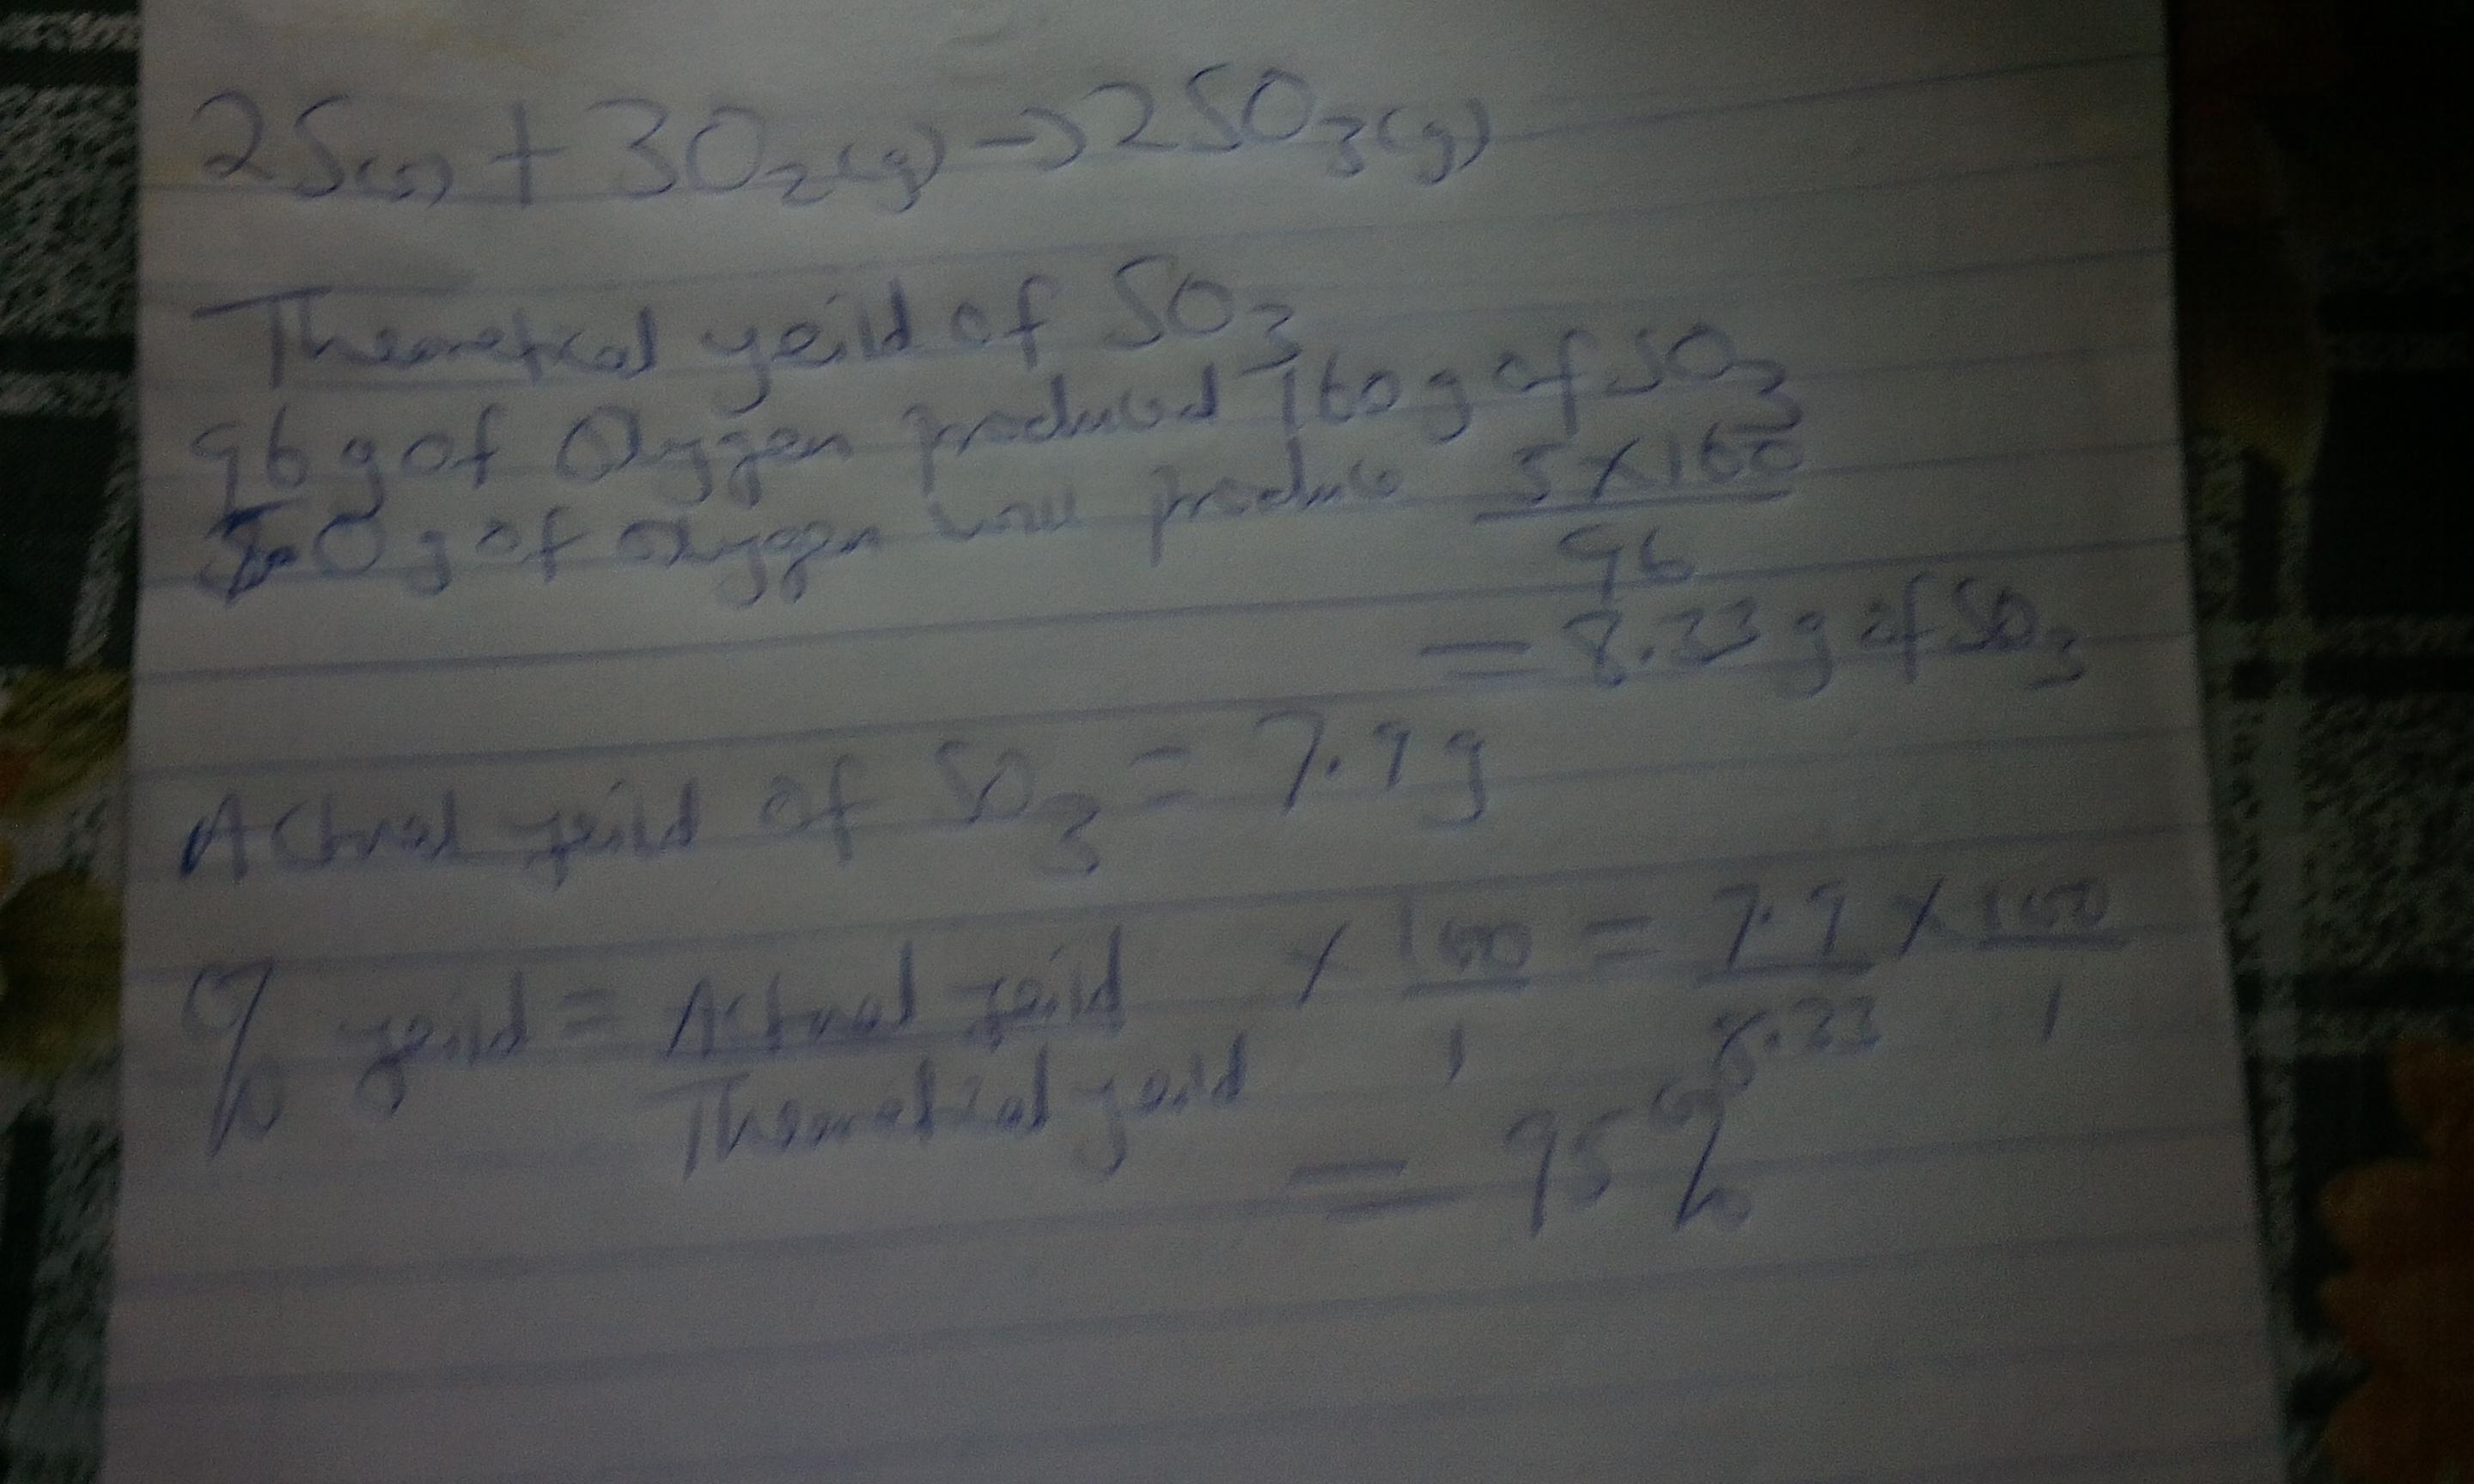 2S(s) + 3O₂(g) → 2SO₃(g)
Theoretical yeild of SO₃
96 g of Oxygen produced 160 g of SO₃
5.0 g of oxygen will produce 5 x 160 / 96
= 8.33 g of SO₃
Actual yeild of SO₃ = 7.9 g
% yeild = Actual yeild / Theoretical yeild x 100 / 1 = 7.9 / 8.33 x 100 / 1
= 95%